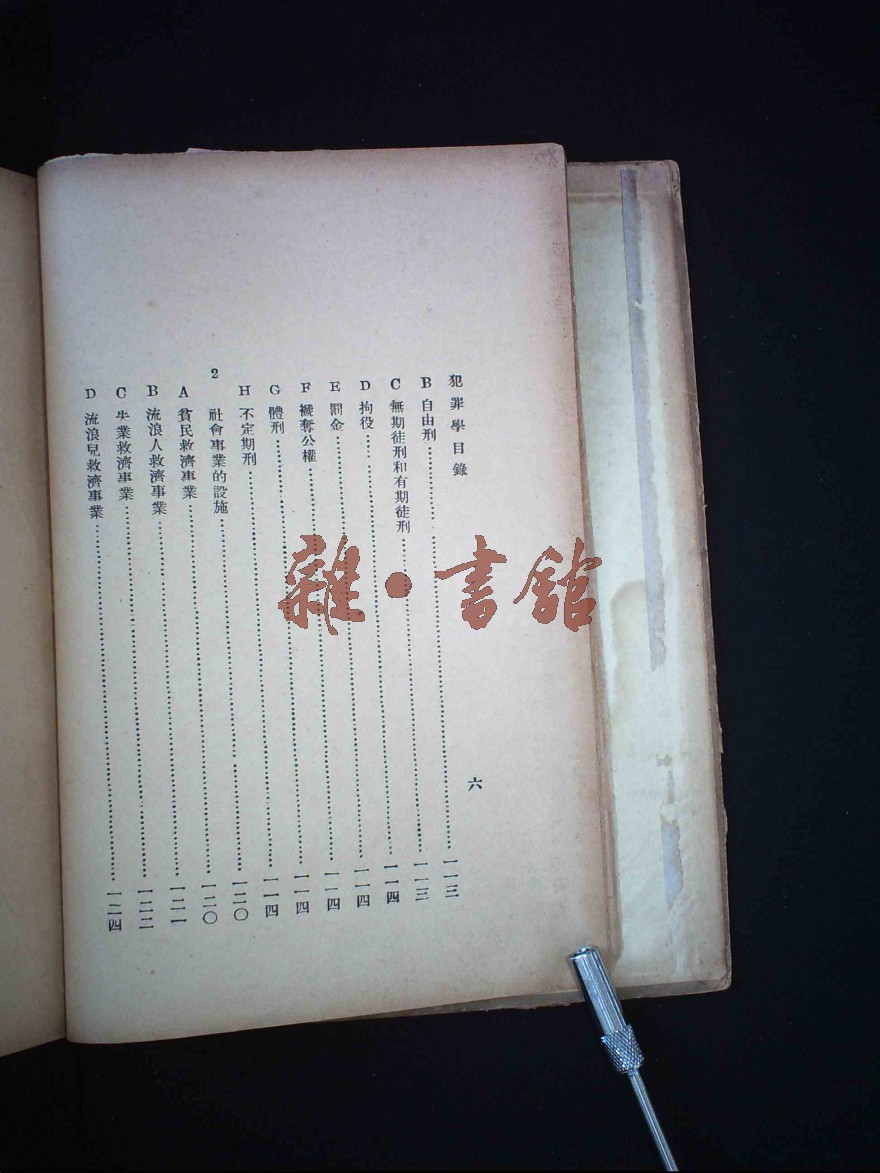 犯罪學目錄 六
B 自由刑……一一三
C 無期徒刑和有期徒刑……一一三
D 拘役……一一四
E 罰金……一一四
F 褫奪公權……一一四
G 體刑……一一四
H 不定期刑……一一四
2 社會事業的設施……一二〇
A 貧民救濟事業……一二〇
B 流浪人救濟事業……一二一
C 失業救濟事業……一二二
D 流浪兒救濟事業……一二四
雜·書館